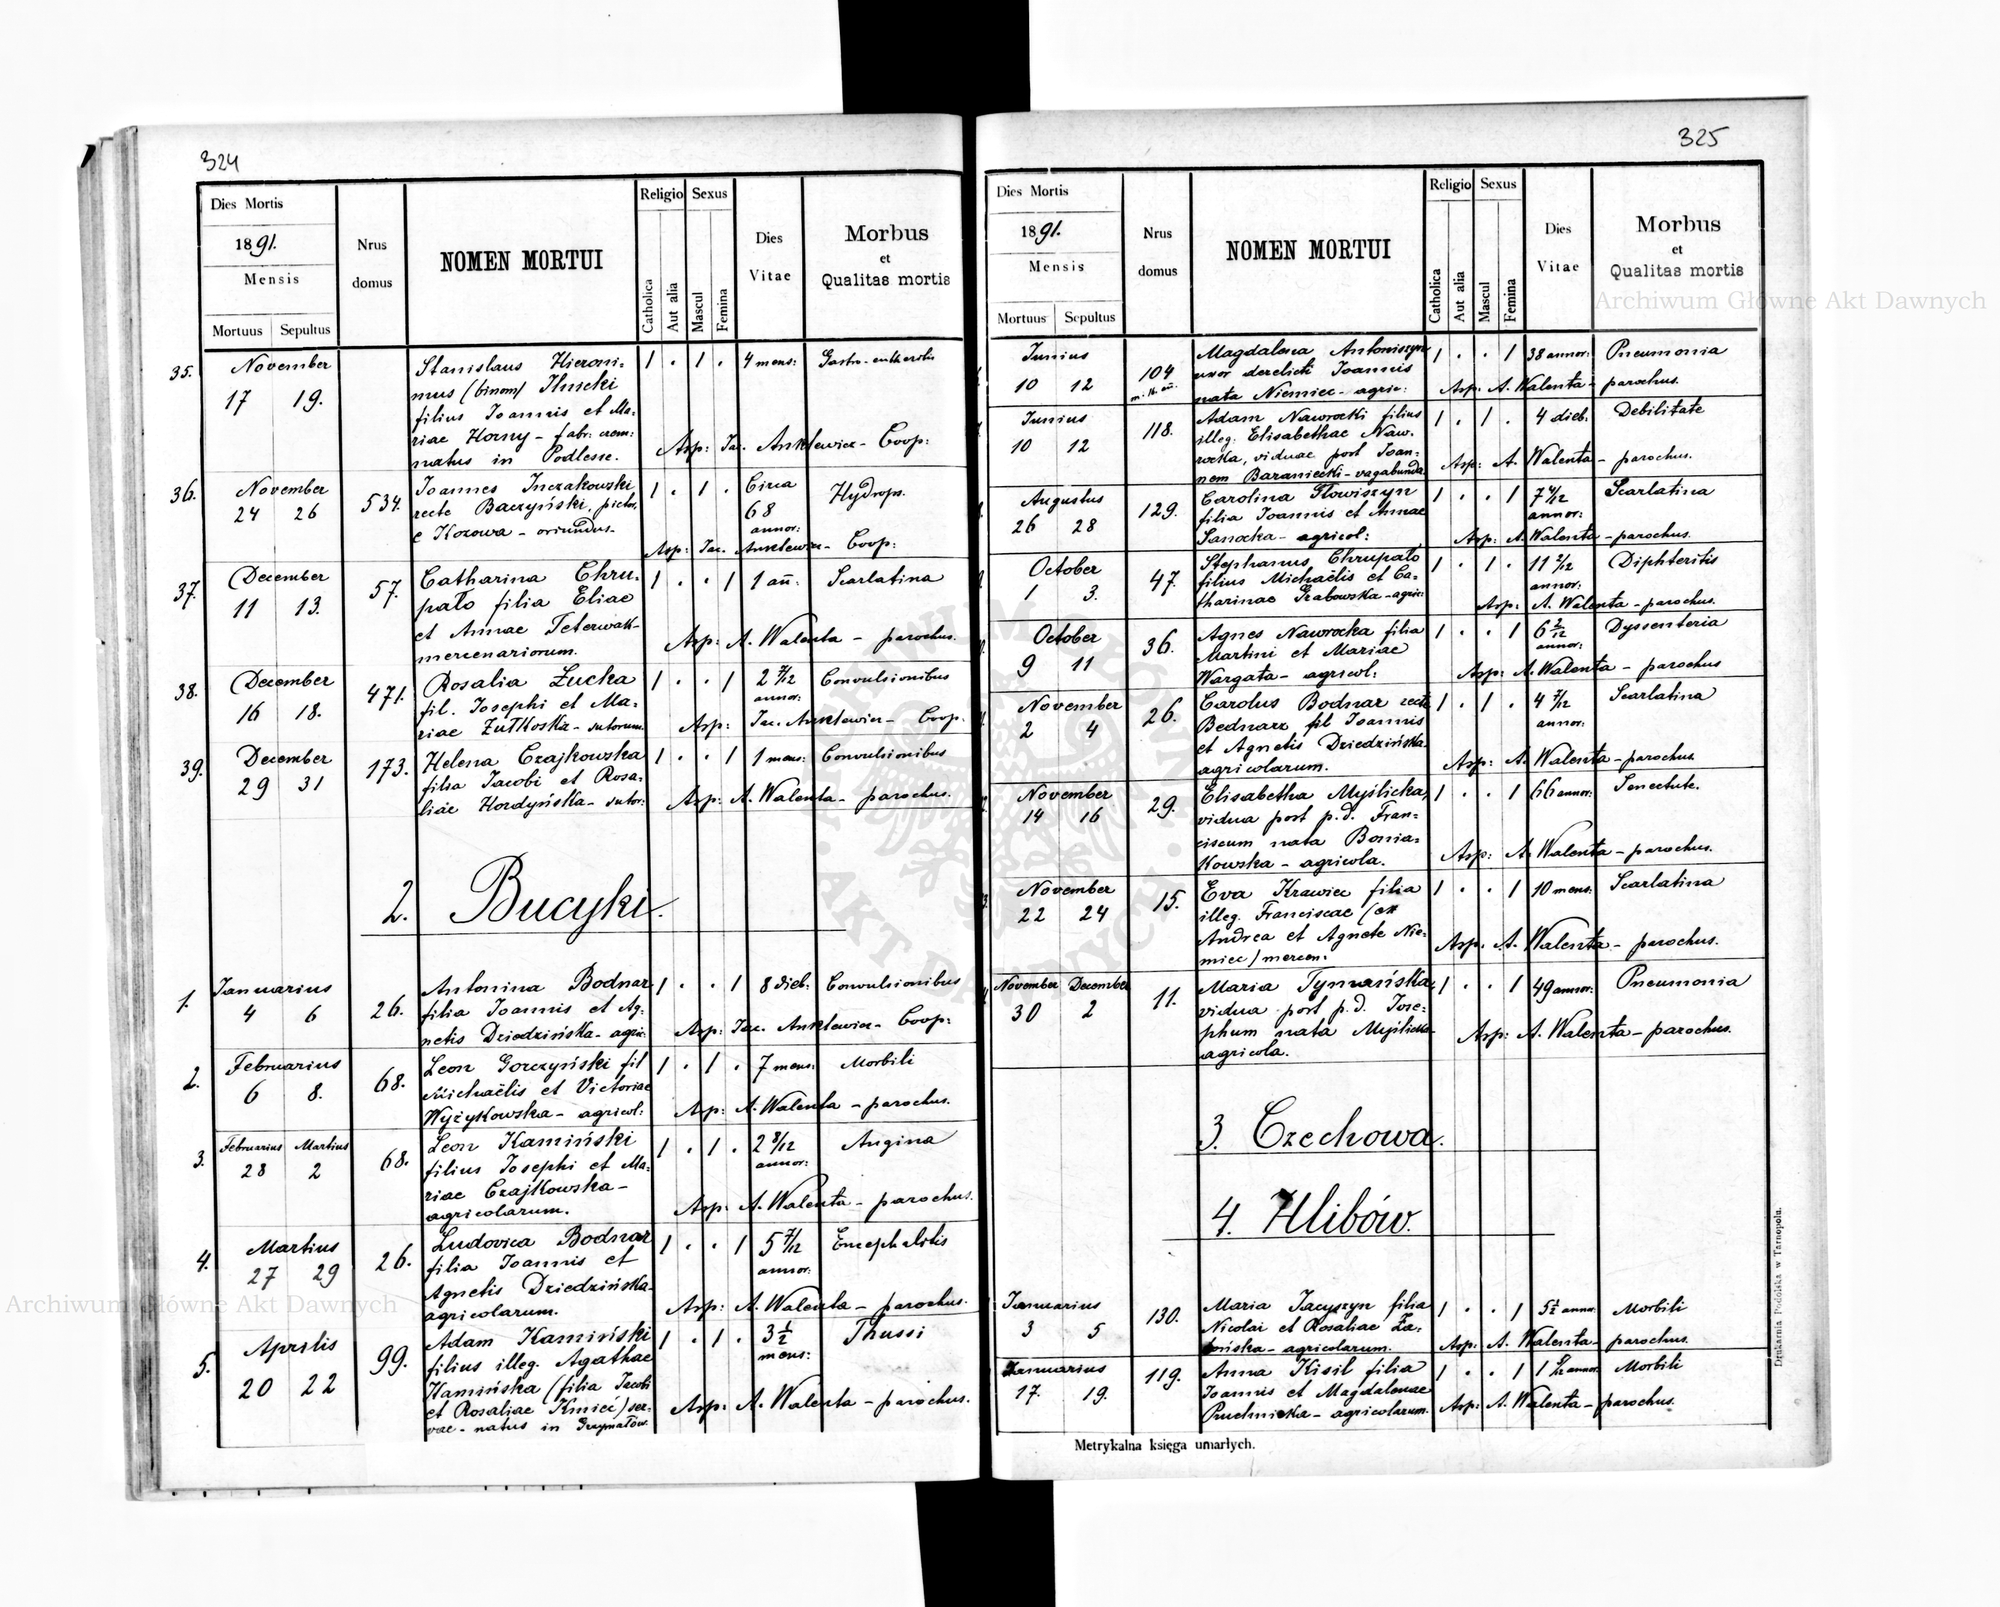 324
Dies Mortis
1891.
Mensis
Mortuus Sepultus
Nrus
domus
NOMEN MORTUI
Religio
Catholica
Aut alia
Sexus
Mascul
Femina
Dies
Vitae
Morbus
et
Qualitas mortis
35. November 17 19.
Stanislaus Hieroni-
mus (binom)
filius Joannis et Ma-
riae Horny - fabr:
natus in Podlesie.
1 . 1 . 4 mens:
Asp: Jac. Anklewicz - Coop:
36. November 24 26 534.
Joannes Inczakowski
recte Baczyński, pictor,
e Kozowa - oriundus.
1 . 1 . Circa 68 annor: Hydrops.
Asp: Jac. Anklewicz - Coop:
37. December 11 13. 57.
Catharina Chru-
pało filia Eliae
et Annae Teterwak -
mercenariorum.
1 . . 1 1 añ: Scarlatina
Asp: A. Walenta - parochus.
38. December 16 18. 471.
Rosalia Żucka
fil. Josephi et Ma-
riae Żutkoska - sutorum
1 . . 1 2 7/12 annor: Convulsionibus
Asp: Jac. Anklewicz - Coop.
39. December 29 31 173.
Helena Czajkowska
filia Jacobi et Rosa-
liae Hordyńska - sutor:
1 . . 1 1 mens: Convulsionibus
Asp: A. Walenta - parochus.
2. Bucyki.
1. Januarius 4 6 26.
Antonina Bodnar
filia Joannis et Ag-
netis Dziedzińska - agric:
1 . . 1 8 dieb: Convulsionibus
Asp: Jac. Anklewicz - Coop:
2. Februarius 6 8. 68.
Leon Gorczyński fil
Michaëlis et Victoriae
Wyżykowska - agricol:
1 . 1 . 7 mens: Morbili
Asp: A. Walenta - parochus.
3. Februarius Martius 28 2 68.
Leon Kamiński
filius Josephi et Ma-
riae Czajkowska -
agricolarum.
1 . 1 . 2 8/12 annor: Angina
Asp: A. Walenta - parochus.
4. Martius 27 29 26.
Ludovica Bodnar
filia Joannis et
Agnetis Dziedzińska -
agricolarum.
1 . . 1 5 7/12 annor: Encephalitis
Asp: A. Walenta - parochus.
5. Aprilis 20 22 99.
Adam Kamiński
filius illeg. Agathae
Kamińska (filia Jacobi
et Rosaliae Kmieć) ser-
vae - natus in Grzymałów.
1 . 1 . 3 1/2 mens: Thussi
Asp: A. Walenta - parochus.
325
Dies Mortis
1891.
Mensis
Mortuus Sepultus
Nrus
domus
NOMEN MORTUI
Religio
Catholica
Aut alia
Sexus
Mascul
Femina
Dies
Vitae
Morbus
et
Qualitas mortis
Junius 10 12 104
Magdalena Antoniszyn
uxor derelicti Joannis
nata Niemiec - agric:
1 . . 1 38 annor: Pneumonia
Asp: A. Walenta - parochus.
Junius 10 12 118.
Adam Nawrocki filius
illeg: Elisabethae Naw-
rocka, viduae post Joan-
nem Baraniecki - vagabunda
1 . 1 . 4 dieb: Debilitate
Asp: A. Walenta - parochus.
Augustus 26 28 129.
Carolina Głowiszyn
filia Joannis et Annae
Sanocka - agricol:
1 . . 1 7 4/12 annor: Scarlatina
Asp: A. Walenta - parochus.
October 1 3. 47.
Stephanus Chrupało
filius Michaëlis et Ca-
tharinae Grabowska - agric:
1 . 1 . 11 2/12 annor: Diphteritis
Asp: A. Walenta - parochus.
October 9 11 36.
Agnes Nawrocka filia
Martini et Mariae
Wargata - agricol:
1 . . 1 6 2/12 annor: Dyssenteria
Asp: A. Walenta - parochus
November 2 4 26.
Carolus Bodnar recte
Bednarz fil Joannis
et Agnetis Dziedzińska
agricolarum.
1 . 1 . 4 7/12 annor: Scarlatina
Asp: A. Walenta - parochus.
November 14 16 29.
Elisabetha Myślicka,
vidua post p.d. Fran-
ciscum nata Bonia-
kowska - agricola.
1 . . 1 66 annor: Senectute.
Asp: A. Walenta - parochus.
November 22 24 15.
Eva Krawiec filia
illeg. Franciscae (ex
Andrea et Agnete Nie-
miec) mercen:
1 . . 1 10 mens: Scarlatina
Asp. A. Walenta - parochus.
November December 30 2 11.
Maria Tymańska,
vidua post p.d. Jose-
phum nata Myślicka
agricola.
1 . . 1 49 annor: Pneumonia
Asp: A. Walenta - parochus.
3. Czechowa.
4. Hlibów.
Januarius 3 5 130.
Maria Jacyszyn filia
Nicolai et Rosaliae
agricolarum.
1 . . 1 5 1/2 annor: Morbili
Asp: A. Walenta - parochus.
Januarius 17. 19. 119.
Anna Kisil filia
Joannis et Magdalenae
Pruchnicka - agricolarum.
1 . . 1 annor: Morbili
Asp: A. Walenta - parochus.
Metrykalna księga umarłych.
Drukarnia Podolska w Tarnopolu.
Archiwum Główne Akt Dawnych
Archiwum Główne Akt Dawnych